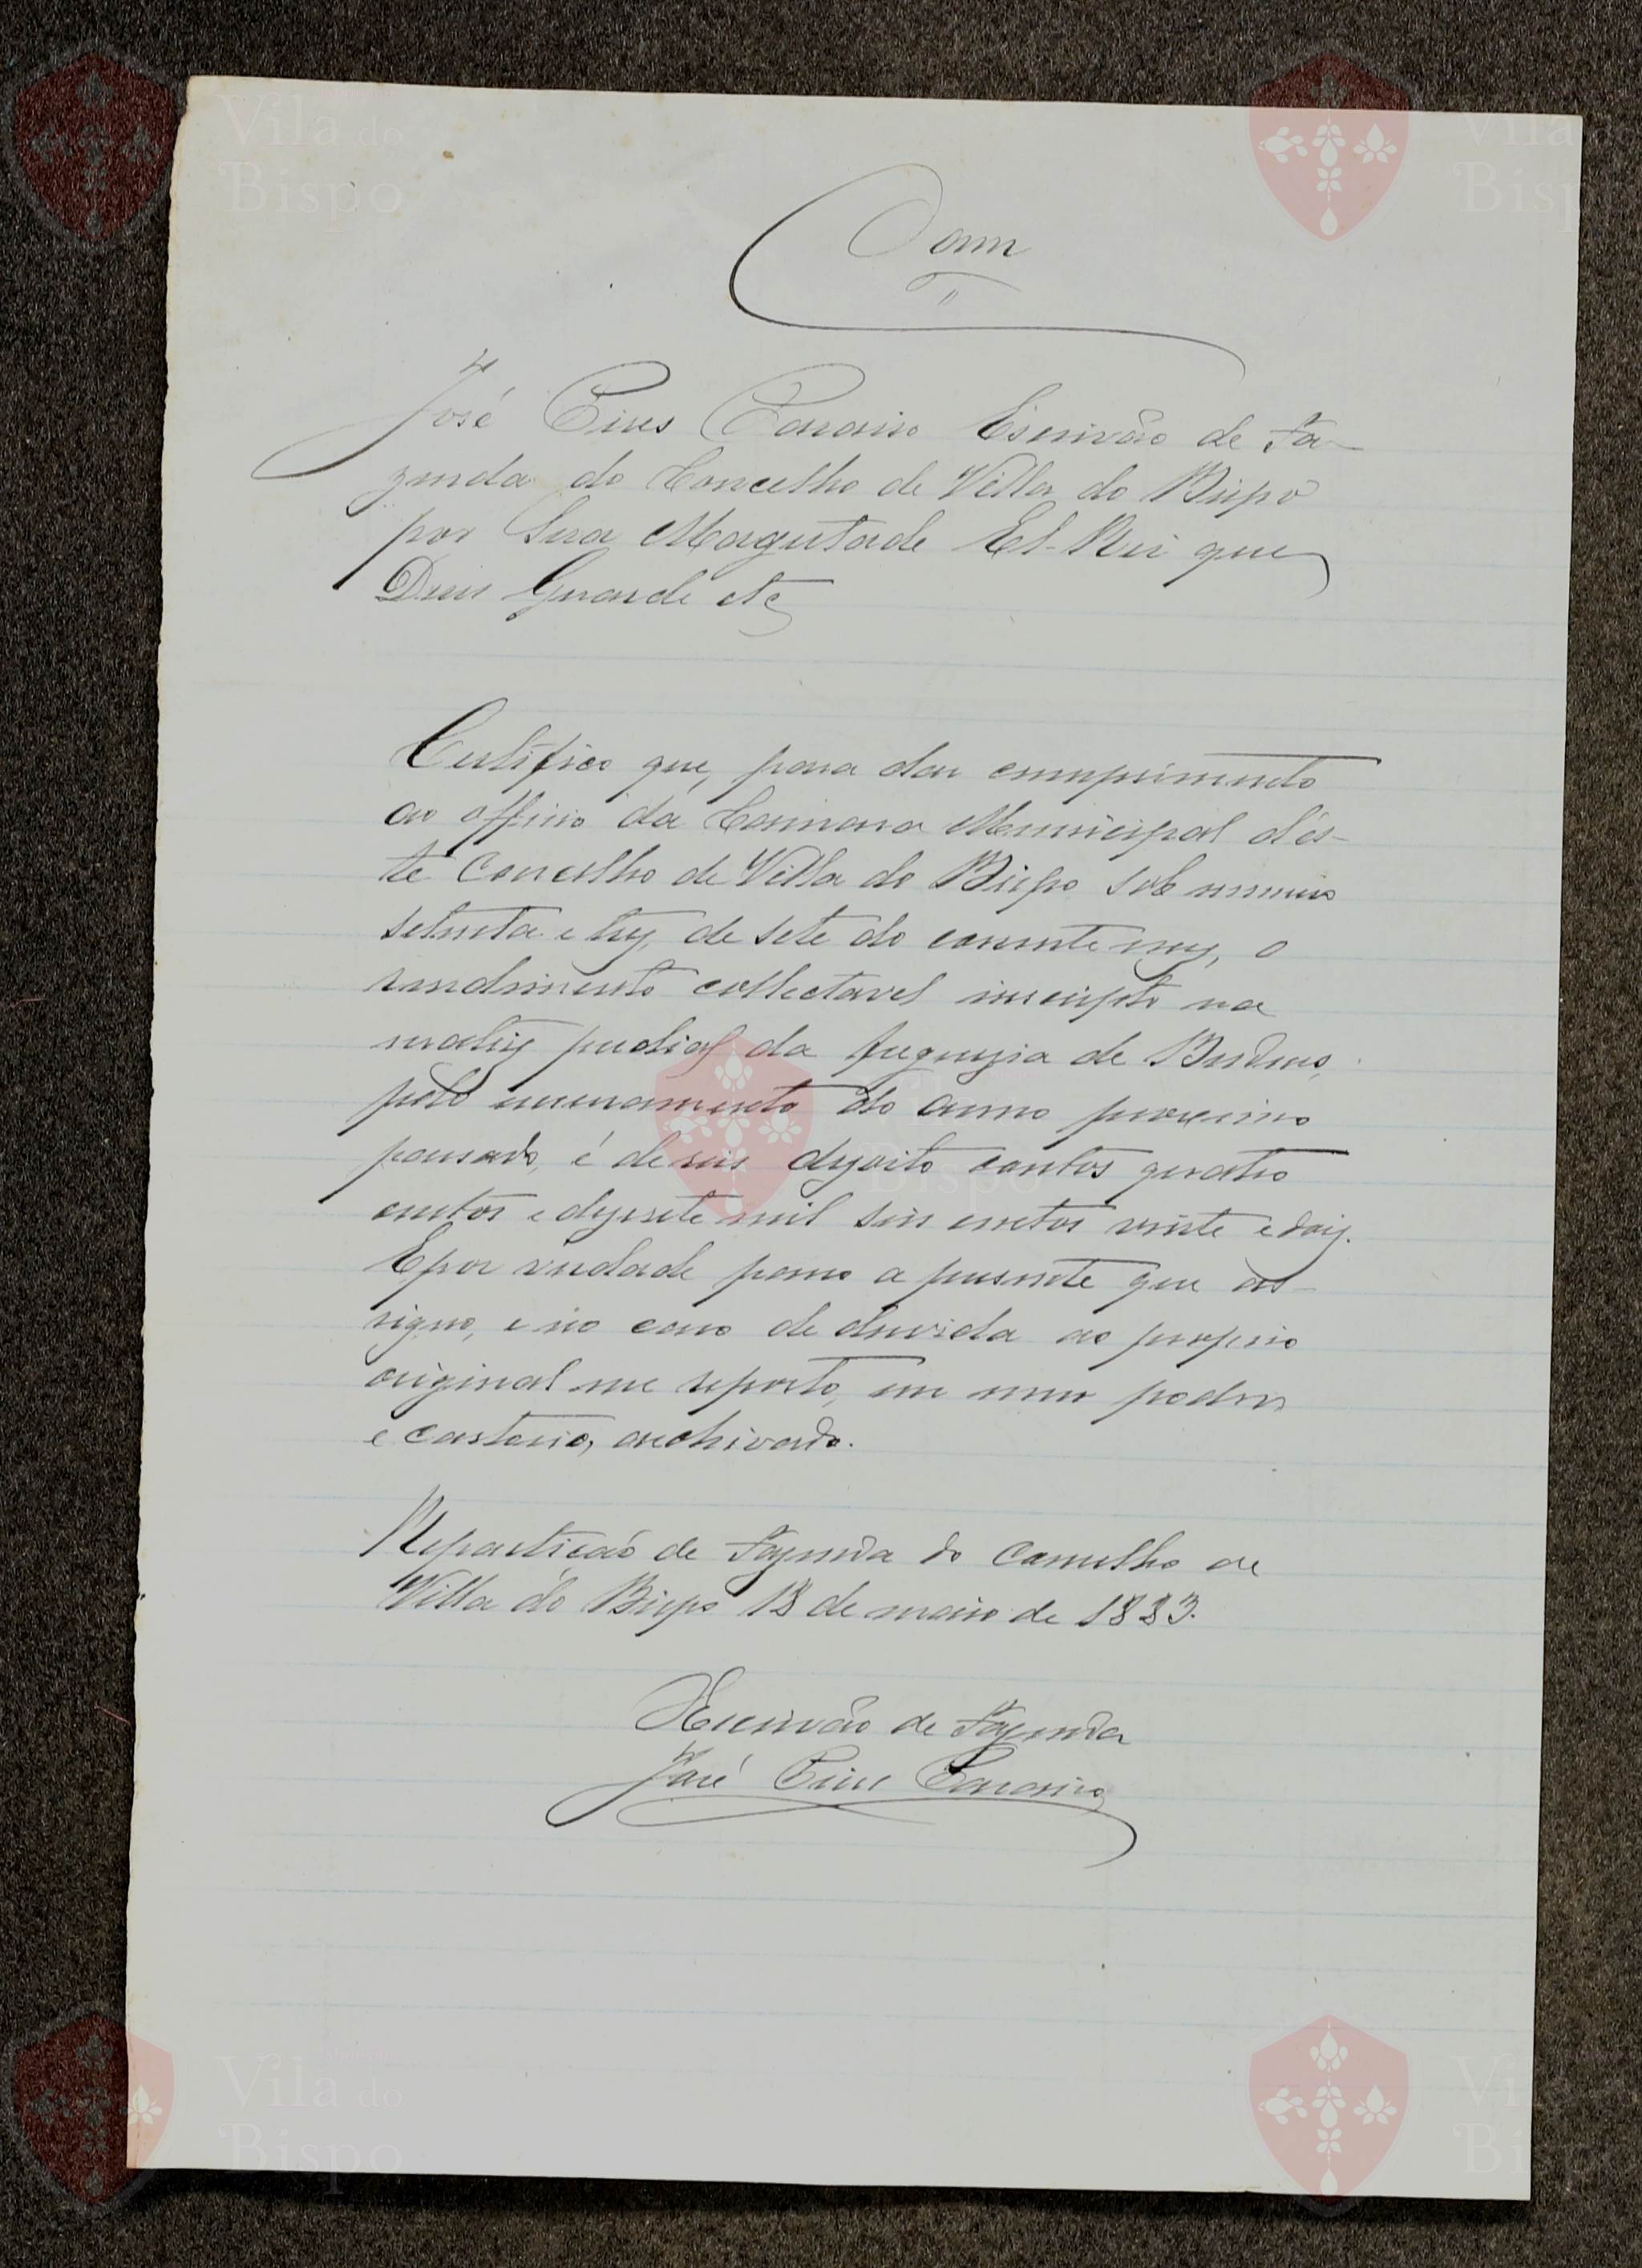 José Pires Escrivão de Fa-
zenda do Concelho de Villa do Bispo
por Sua Magestade El-Rei que
Deus Guarde etc
Certifico que, para dar cumprimento
ao officio da Camara Municipal d'es-
te Concelho de Villa do Bispo sob numero
setenta e trez, de sete do corrente mez, o
rendimento collectavel inscripto na
matriz predial da freguezia de Budens,
pelo encerramento do anno proximo
passado, é de reis dezoito contos quatro
centos e dezesete mil seis centos vinte e doiz.
E por verdade passo a presente que as-
signo, e no caso de duvida ao proprio
original me reporto, em meu poder
e cartorio, archivado.
Repartição de Fazenda do Concelho de
Villa do Bispo 18 de maio de 1883.
O Escrivão de Fazenda
José Pires
Vila do
Bispo